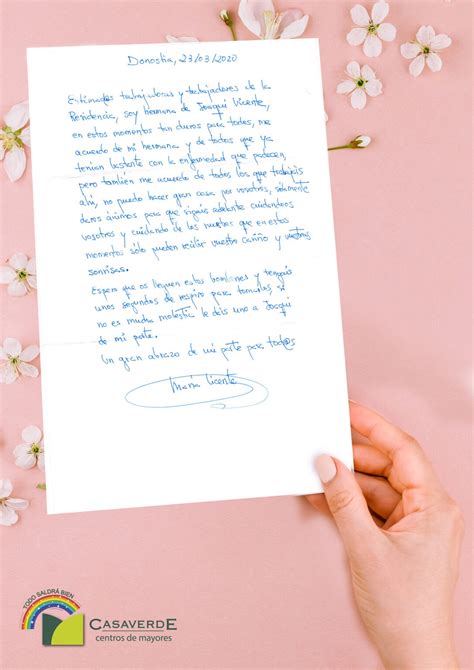 Donostia, 23/03/2020
Estimadas trabajadoras y trabajadores de la
Residencia, soy hermana de Joaqui Vicente,
en estos momentos tan duros para todos, me
acuerdo de mi hermana y de todos que ya
tenían bastante con la enfermedad que padecen,
pero también me acuerdo de todos los que trabajáis
ahí, no puedo hacer gran cosa por vosotros, solamente
daros ánimos para que sigáis adelante cuidandoos
vosotros y cuidando de los nuestros que en estos
momentos sólo pueden recibir vuestro cariño y vuestras
sonrisas.
Espero que os lleguen estos bombones y tengáis
unos segundos de respiro para tomarlos, si
no es mucha molestia le deis uno a Joaqui
de mi parte.
Un gran abrazo de mi parte para tod@s
María Vicente
TODO SALDRÁ BIEN
CASAVERDE
centros de mayores